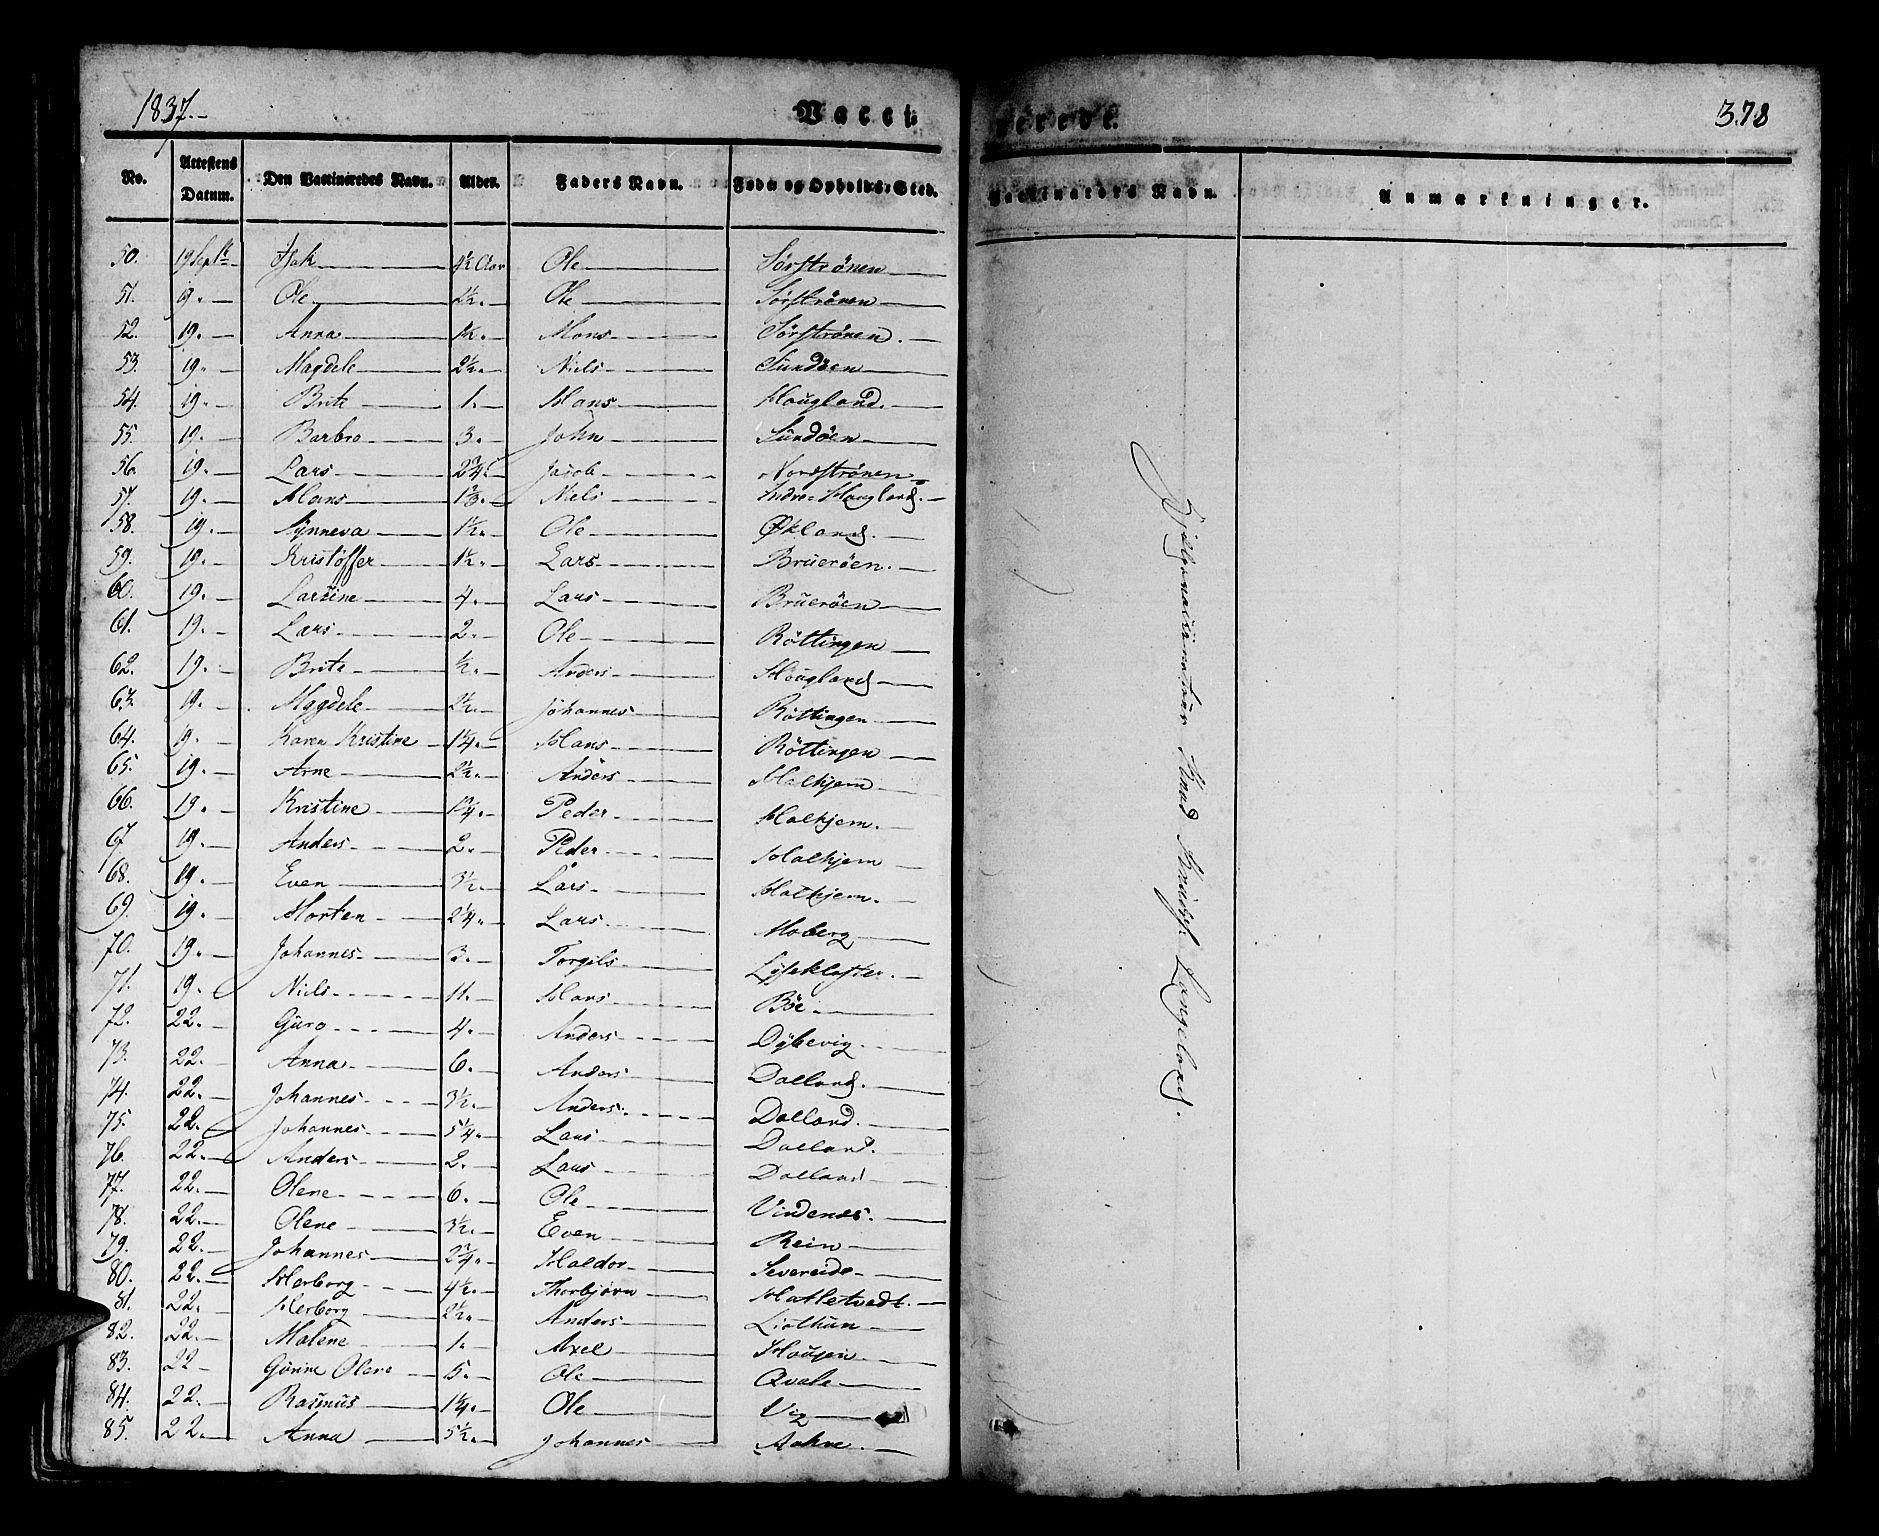 1837.-
Vacci-
nerede.
378
No. Attestens Datum. Den Vaccineredes Navn. Alder. Faders Navn. Føde- og Opholds-Sted. Vaccinators Navn. Anmærkninger.
50. 19 Septbr Isak 4½ Aar Ole Sörströnen
51. 19. Ole 2½. Ole Sörströnen
52. 19. Anna 1½. Mons Sörströnen.
53. 19. Magdele 2½. Niels Sundöen
54. 19. Brite 1. Hans Hougland.
55. 19. Barbro 3. John Sundöen
56. 19. Lars 2¾. Jacob Nordströnen
57. 19. Hans 1⅔. Niels Indre-Hougland.
58. 19. Synneva 1½. Ole Økland.
59. 19. Kristoffer 1½. Lars Brueröen.
60. 19. Larsine 4. Lars Brueröen
61. 19. Lars 2. Ole Röttingen
62. 19. Brite ½. Anders Hougland
63. 19. Magdele 2½. Johannes Röttingen
64. 19. Karen Kristine 1¼. Hans Röttingen
65. 19. Arne 2½. Anders Halhjem
66. 19. Kristine 1¾. Peder Halhjem.
67. 19. Anders 2. Peder Halhjem
68. 19. Even 3½. Lars Halhjem.
69. 19. Morten 2¼. Lars Moberg
70. 19. Johannes 3. Torgils Lysekloster.
71. 19. Niels 11. Hans Böe
72. 22. Guro 4. Anders Dyhevig.
73. 22. Anna 6. Anders Dalland.
74. 22. Johannes 3½. Anders Dalland.
75. 22. Johannes 5¼. Lars Dalland.
76. 22. Anders 2. Lars Dalland
77. 22. Olene 6. Ole Vindenes.
78. 22. Olene 3½. Even Rein
79. 22. Johannes 2¾. Haldor Severeide
80. 22. Herborg 4½. Thorbjörn Hatletvedt.
81. 22. Herborg 2½. Anders Liathun
82. 22. Malene 1. Axel Haugen
83. 22 Gunne Olene 5. Ole Qvale
84. 22. Rasmus 1¼. Ole Vig
85. 22. Anna 5½. Johannes
Hjelpevaccinateur Knud Langeland.